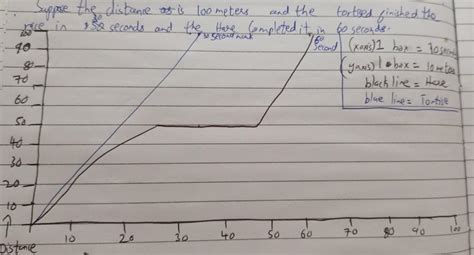 Suppose the distance is 100 meters and the tortises finished the
race in 30 seconds and the Hare Completed it in 60 seconds.
100
90
80
70
60
50
40
30
20
10
30 second mark
60
second
(xaxis) 1 box = 10 seconds
(yaxis) 1 box = 10 meters
black line = Hare
blue line = Tortile
10 20 30 40 50 60 70 80 90 100
Distance